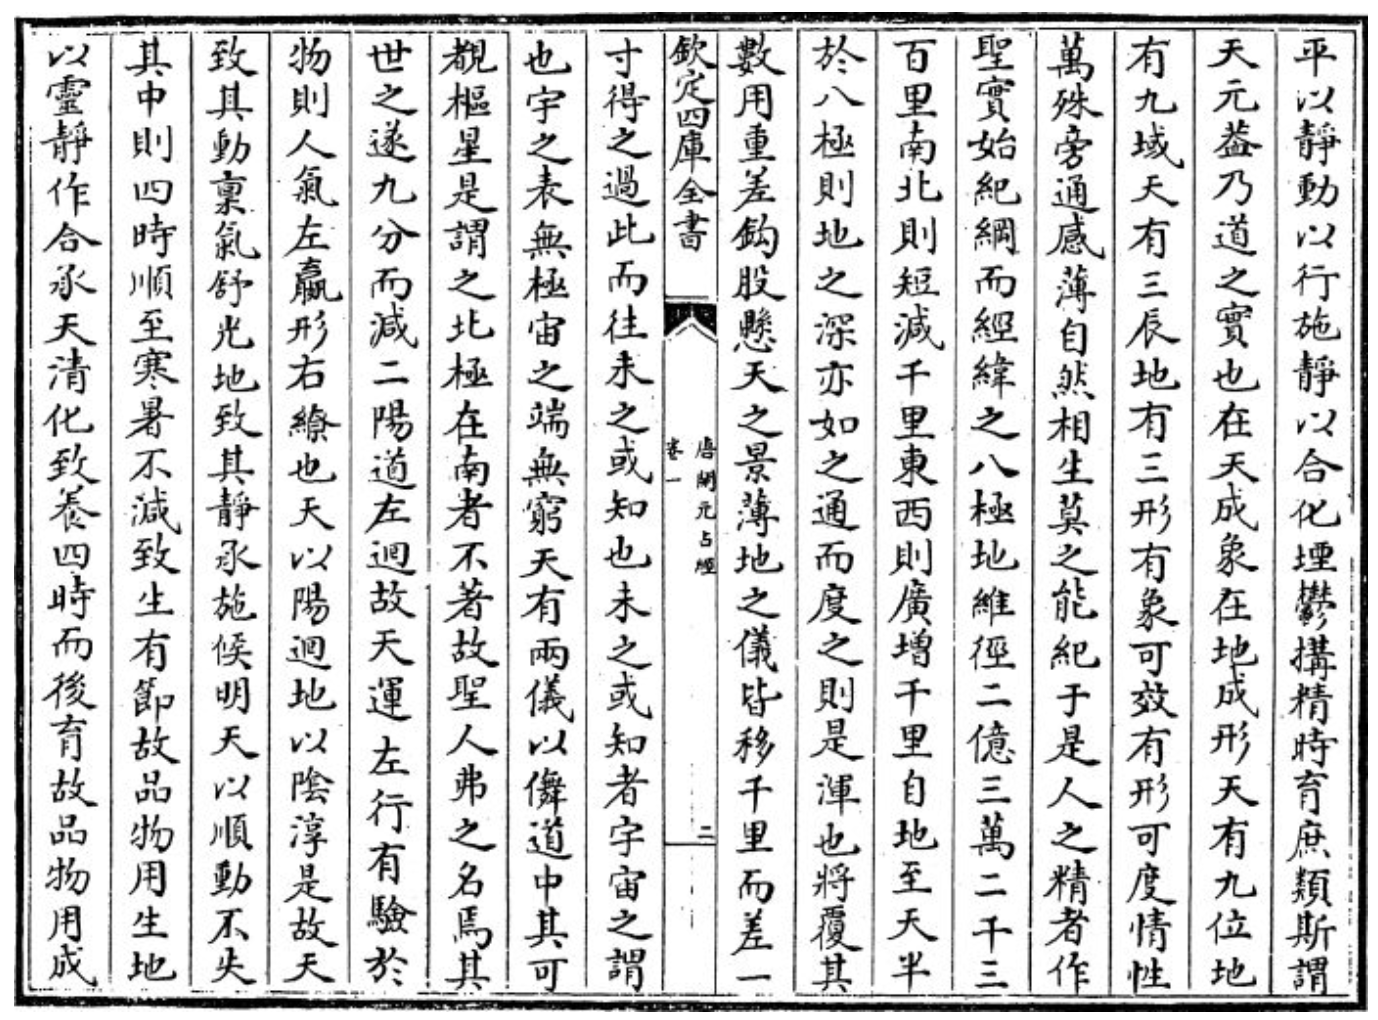 平以靜動以行施靜以合化堙鬱搆精時育庶類斯謂
天元葢乃道之實也在天成象在地成形天有九位地
有九域天有三辰地有三形有象可效有形可度情性
萬殊旁通感薄自然相生莫之能紀于是人之精者作
聖實始紀綱而經緯之八極地維徑二億三萬二千三
百里南北則短減千里東西則廣增千里自地至天半
於八極則地之深亦如之通而度之則是渾也將覆其
數用重差鈎股懸天之景薄地之儀皆移千里而差一
欽定四庫全書
唐開元占經
卷一
二
寸得之過此而往未之或知也未之或知者宇宙之謂
也宇之表無極宙之端無窮天有兩儀以儛道中其可
覩樞星是謂之北極在南者不著故聖人弗之名焉其
世之遂九分而減二陽道左迴故天運左行有驗於
物則人氣左羸形右繚也天以陽迴地以陰淳是故天
致其動稟氣舒光地致其靜承施候明天以順動不失
其中則四時順至寒暑不減致生有節故品物用生地
以靈靜作合承天清化致養四時而後育故品物用成